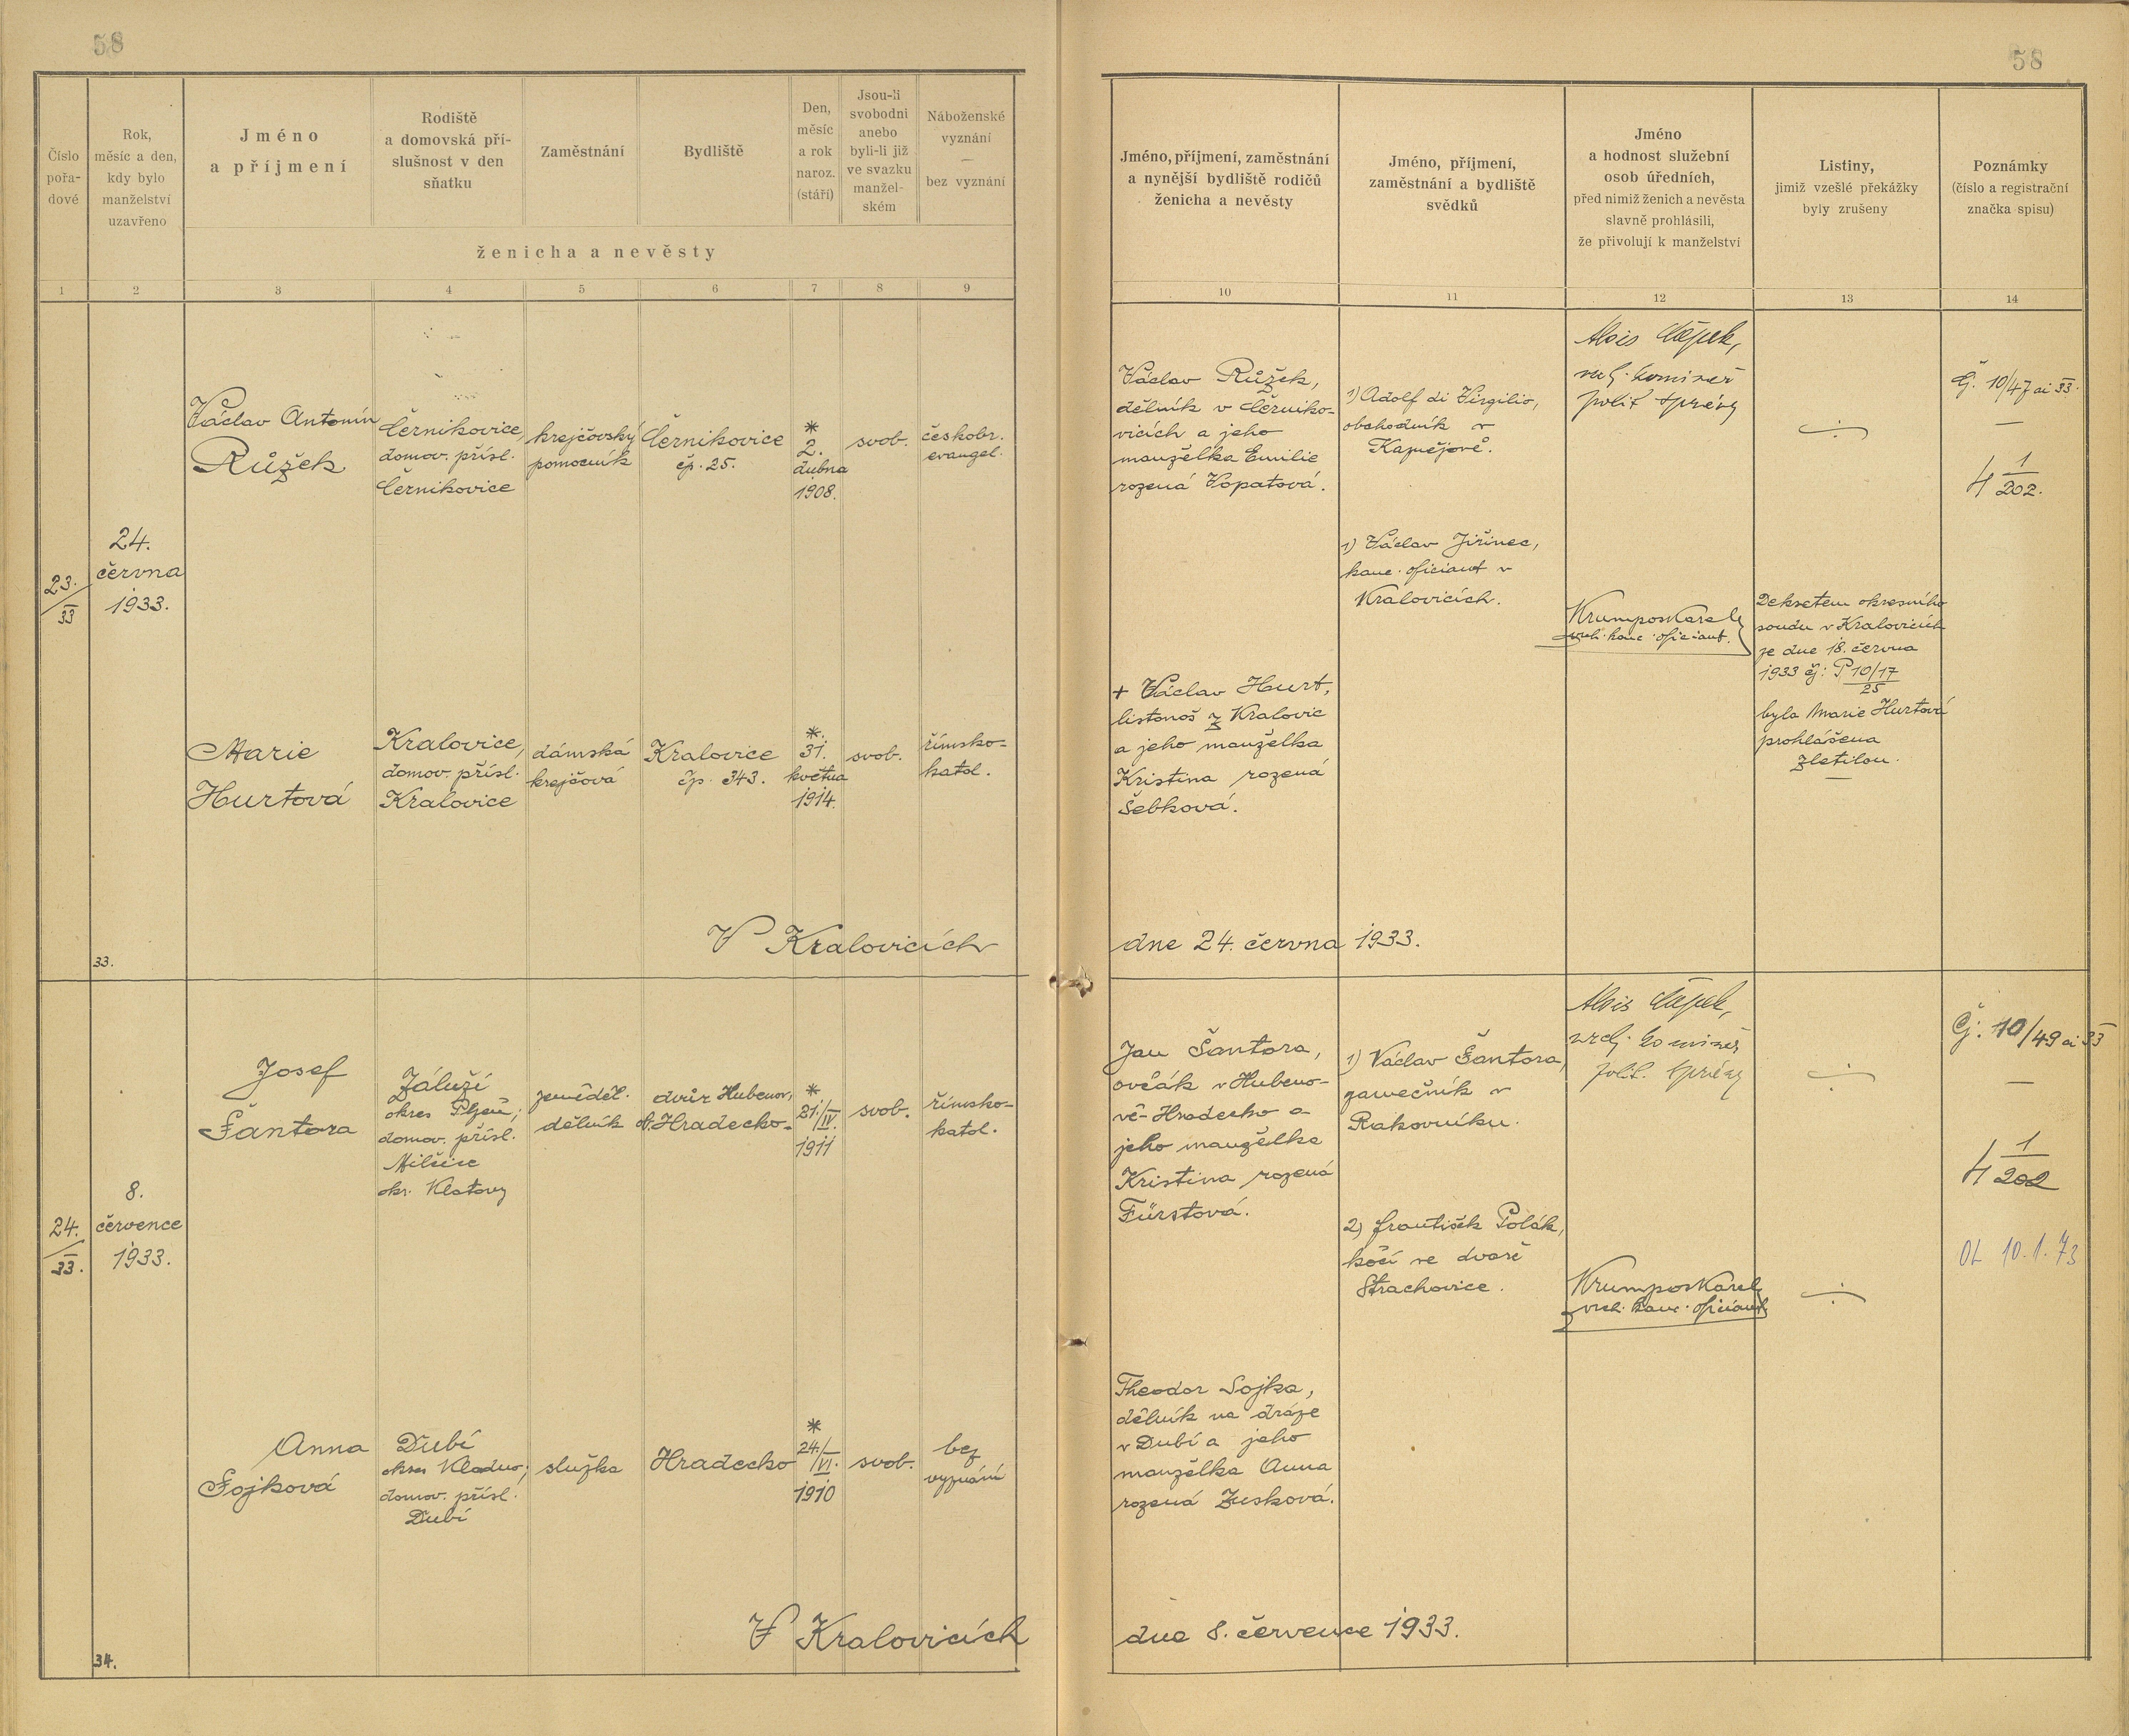 58
58
Číslo
pořa-
dové
Rok,
měsíc a den,
kdy bylo
manželství
uzavřeno
Jméno
a příjmení
Rodiště
a domovská pří-
slušnost v den
sňatku
Zaměstnání
Bydliště
Den,
měsíc
a rok
naroz.
(stáří)
Jsou-li
svobodni
anebo
byli-li již
ve svazku
manžel-
ském
Náboženské
vyznání
—
bez vyznání
ženicha a nevěsty
Jméno, příjmení, zaměstnání
a nynější bydliště rodičů
ženicha a nevěsty
Jméno, příjmení,
zaměstnání a bydliště
svědků
Jméno
a hodnost služební
osob úředních,
před nimiž ženich a nevěsta
slavně prohlásili,
že přivolují k manželství
Listiny,
jimiž vzešlé překážky
byly zrušeny
Poznámky
(číslo a registrační
značka spisu)
1 2 3 4 5 6 7 8 9
10 11 12 13 14
23./33
24.
června
1933.
Václav Antonín
Růžek
Černikovice,
domov. přísl.
Černikovice
krejčovský
pomocník
Černikovice
čp. 25.
*
2.
dubna
1908.
svob.
českobr.
evangel.
Václav Růžek,
dělník v Černiko-
vicích a jeho
manželka Emilie
rozená Vopatová.
1) Adolf di Virgilio,
obchodník v
Kaznějově.
1) Václav Jiřinec,
kanc. oficiant v
Kralovicích.
Alois Čápek,
vrch. komisař
polit. správy
Krumpos Karel
vrch. kanc. oficiant.
Čj. 10/47 ai 33.
—
4 1/202.
Marie
Hurtová
Kralovice,
domov. přísl.
Kralovice
dámská
krejčová
Kralovice
čp. 343.
*
31.
května
1914.
svob.
římsko-
katol.
+ Václav Hurt,
listonoš z Kralovic
a jeho manželka
Kristina rozená
Šebková.
Dekretem okresního
soudu v Kralovicích
ze dne 18. června
1933 čj: P 10/17
25
byla Marie Hurtová
prohlášena
zletilou.
V Kralovicích
dne 24. června 1933.
33.
24./33.
8.
července
1933.
Josef
Šantora
Záluží
okres Plzeň;
domov. přísl.
Milčice
okr. Klatovy
zeměděl.
dělník
dvůr Hubenov,
o. Hradecko.
*
21./IV.
1911
svob.
římsko-
katol.
Jan Šantora,
ovčák v Hubeno-
vě-Hradecko a
jeho manželka
Kristina rozená
Fürstová.
1) Václav Šantora,
zámečník v
Rakovníku.
2) František Polák,
kočí ve dvoře
Strachovice.
Alois Čápek,
vrch. komisař
polit. správy
Krumpos Karel
vrch. kanc. oficiant
Čj. 10/49 ai 33
—
4 1/202
OL 10.1.73
Anna
Sojková
Dubí
okres Kladno;
domov. přísl.
Dubí
služka
Hradecko
*
24./VI.
1910
svob.
bez
vyznání
Theodor Sojka,
dělník na dráze
v Dubí a jeho
manželka Anna
rozená Zusková.
V Kralovicích
dne 8. července 1933.
34.